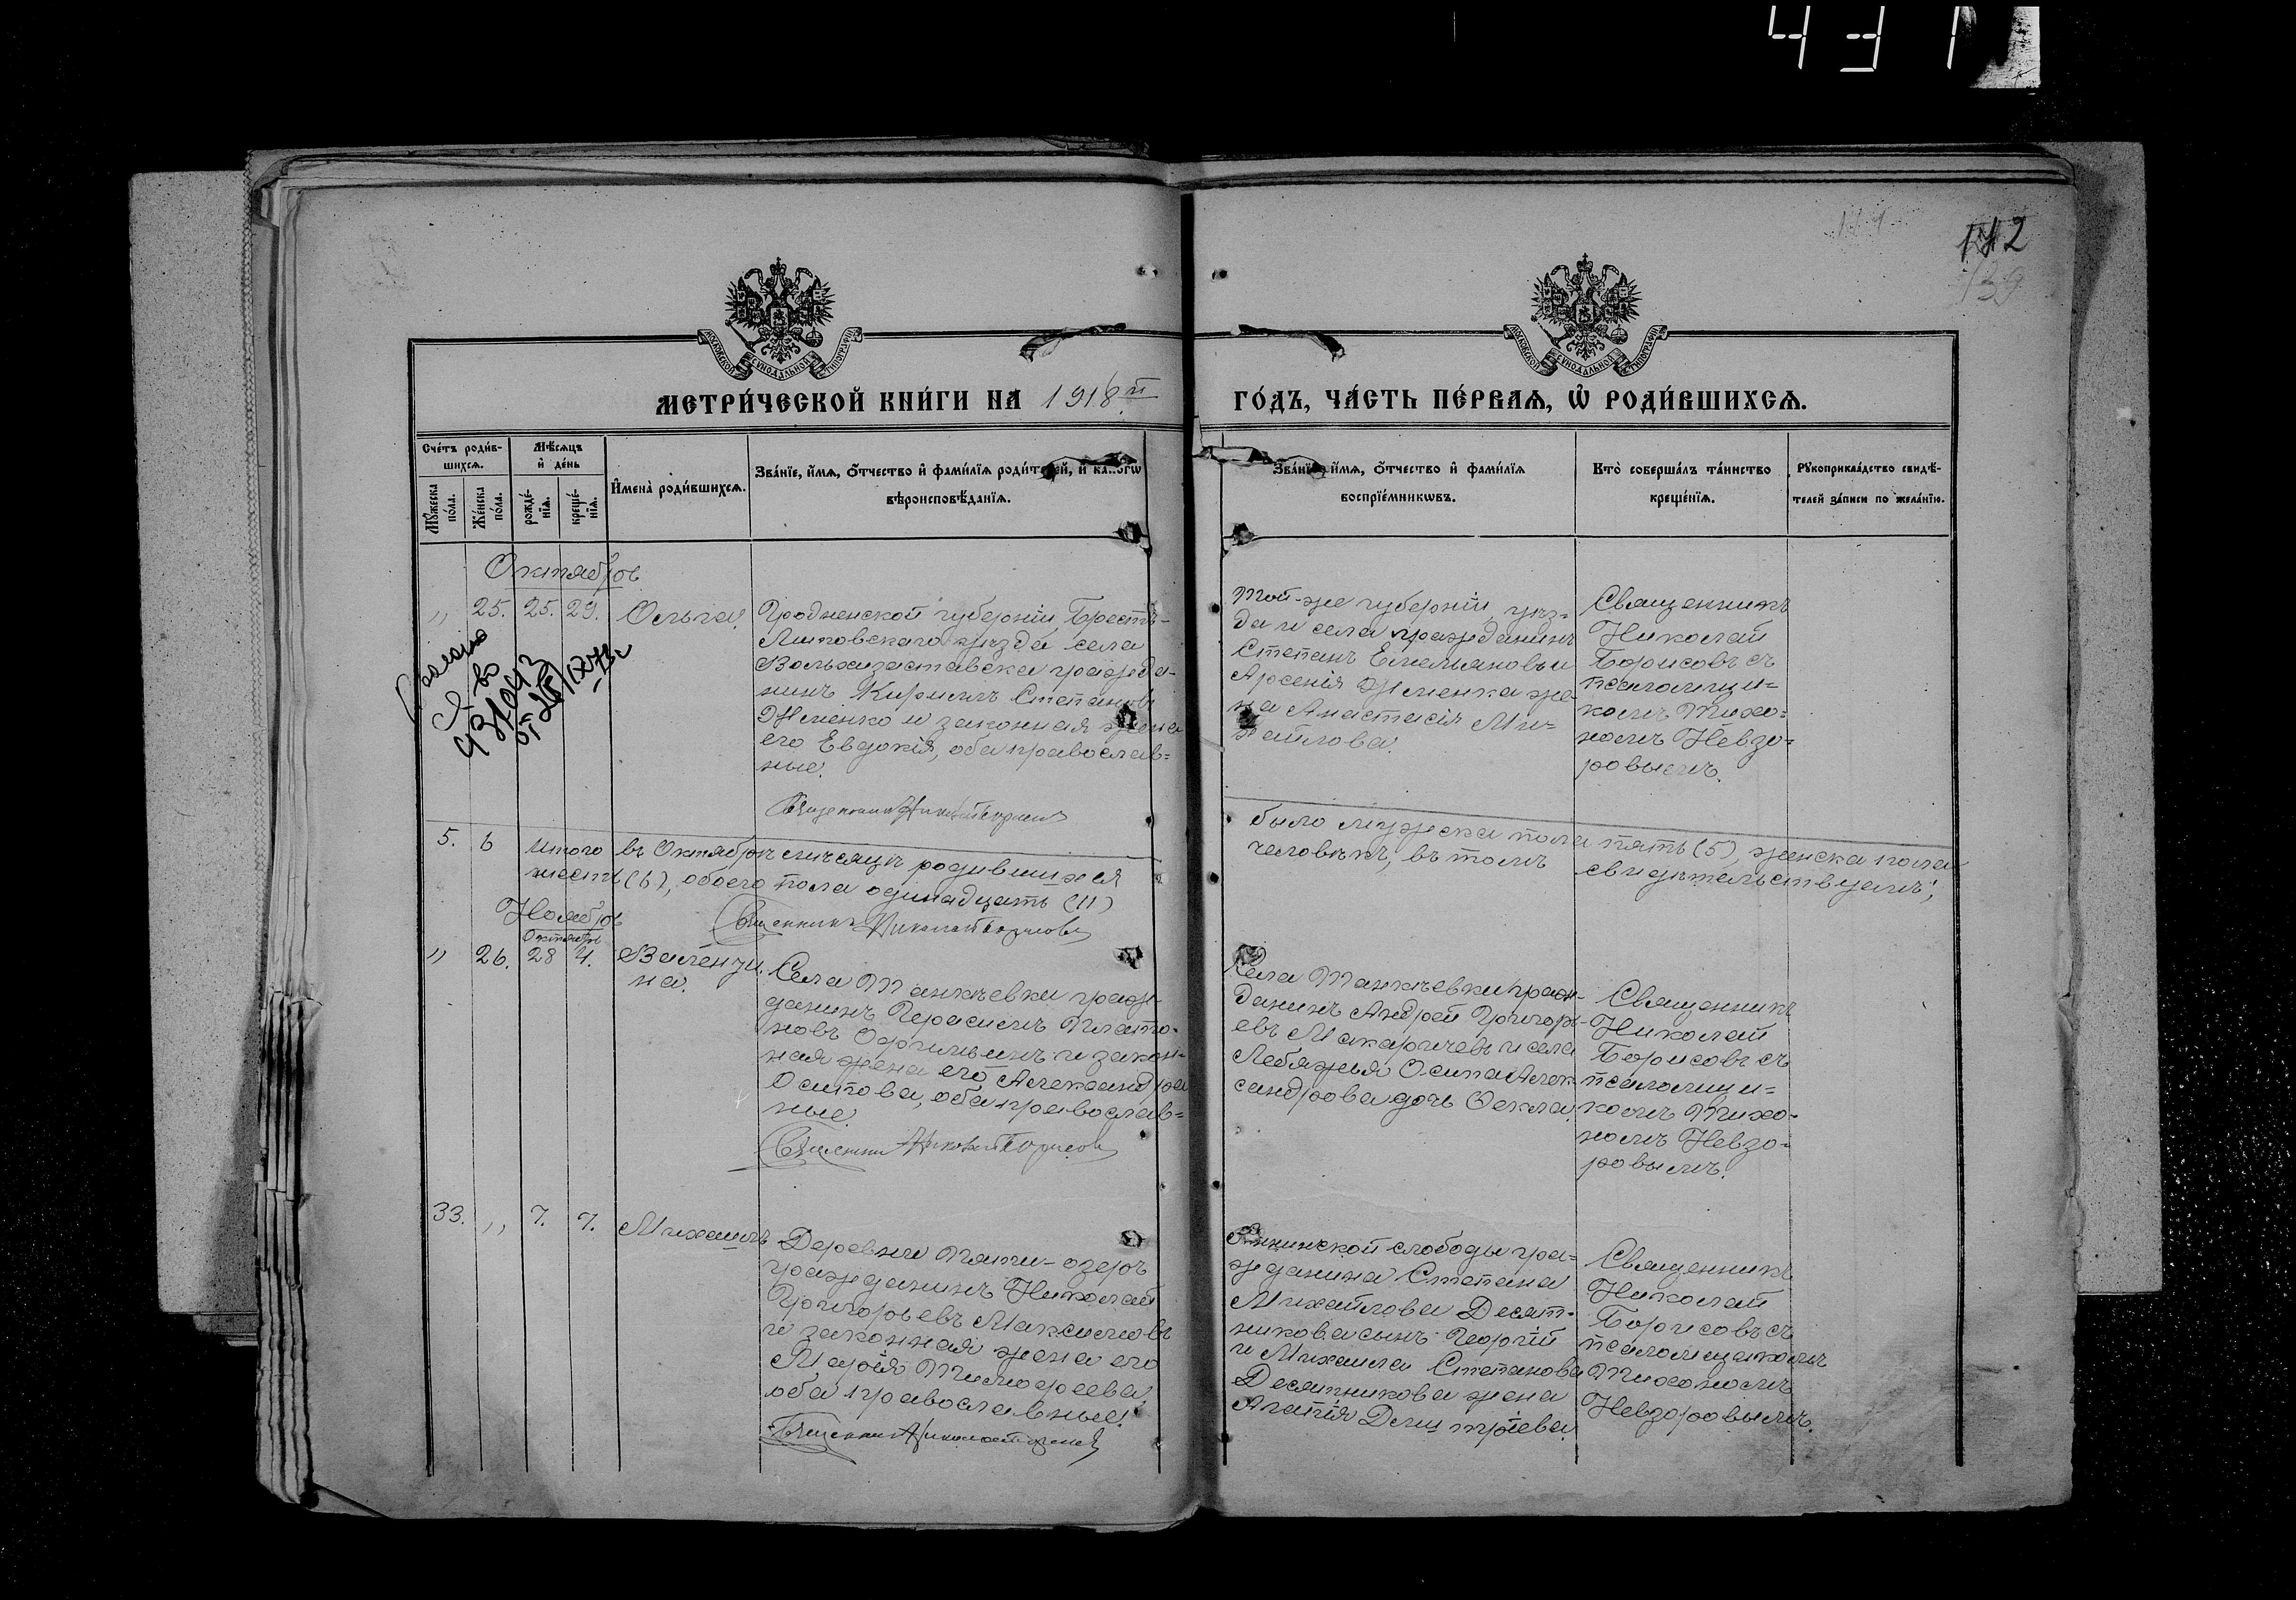 431
112
139
МЕТРИ́ЧЕСКОЙ КНИ́ГИ НА 1918 й
ГО́ДЪ, ЧА́СТЬ ПЕ́РВАЯ, Ѡ РОДИ́ВШИХСЯ.
МОСКОВСКОЙ СѴНОДАЛЬНОЙ ТИПОГРАФІИ
МОСКОВСКОЙ СѴНОДАЛЬНОЙ ТИПОГРАФІИ
Сче́тъ роди́в-
шихся.
Му́жеска по́ла.
Же́нска по́ла.
Мѣ́сяцъ
и де́нь
рожде́-
нїя.
креще́-
нїя.
Имена̀ роди́вшихся.
Зва́нїе, и́мя, о́тчество и фами́лїя роди́телей, и како́гѡ
вѣроисповѣ́данїя.
Зва́нїе, и́мя, о́тчество и фами́лїя
воспрїе́мникѡвъ.
Кто̀ соверша́лъ та́инство
креще́нїя.
Рукоприкла́дство свидѣ́-
телей за́писи по жела́нїю.
Октябрь
" 25. 25. 29. Ольга.
Гродненской губерніи, Брестъ-
Литовскаго уѣзда села
Вольказаставска гражда-
нинъ Кириллъ Степановъ
Жменко и законная жена
его Евдокія, оба православ=
ные.
Священникъ Николай Борисовъ
Той-же губерніи уѣз=
да и села гражданинъ
Степанъ Емельяновъ и
Арсенія Жменка же=
на Анастасія Ми=
хайлова.
Священникъ
Николай
Борисовъ съ
псаломщи=
комъ Тихо=
номъ Невзо=
ровымъ.
5. 6 Итого въ Октябрѣ мѣсяцѣ родившихся
было мужеска пола пять (5), женска пола
шесть (6), обоего пола одинадцать (11)
человѣкъ, въ томъ свидѣтельствуемъ:
Священникъ Николай Борисовъ
Ноябрь
Октября
" 26. 28 4. Валенти-
на.
Села Танкѣевки граж-
данинъ Герасимъ Плато-
новъ и закон-
ная жена его Александра
Осипова, оба православ=
ные.
Священникъ Николай Борисовъ
Села Танкѣевки граж-
данинъ Андрей Григорь-
евъ Макарычевъ и села
Лебяжья Осипа Алек-
сандрова дочь Ѳекла.
Священникъ
Николай
Борисовъ съ
псаломщи=
комъ Тихо-
номъ Невзо-
ровымъ.
33. " 7. 7. Михаилъ
Деревни Пяти-озеръ
гражданинъ Николай
Григорьевъ Максимовъ
и законная жена его
Марія Тимоѳеева
оба православные.
Священникъ Николай Борисовъ
слободы гра=
жданина Степана
Михайлова Десят-
никова сынъ Георгій
и Михаила Степанова
Десятникова жена
Агапія Димитріева
Священникъ
Николай
Борисовъ съ
псаломщикомъ
Тихономъ
Невзоровымъ.